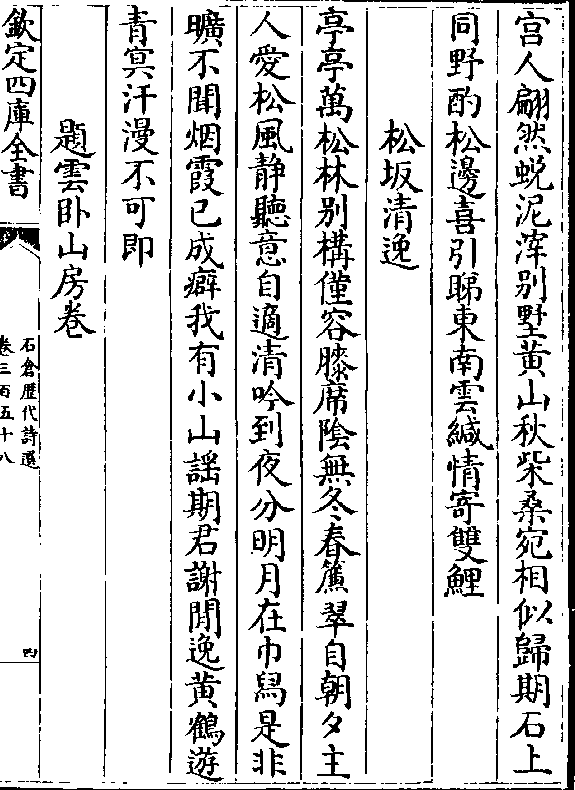 宫人翩然蜕泥滓别墅黄山秋柴桑宛相似歸期石上
同野酌松邊喜引睇東南雲緘情寄雙鯉
松坂清逸
亭亭萬松林别構僅容膝席陰無冬春簾翠自朝夕主
人愛松風静聽意自適清吟到夜分明月在巾舄是非
曠不聞烟霞已成癖我有小山謡期君謝閒逸黄鶴遊
青冥汗漫不可即
題雲卧山房卷
欽定四庫全書
石倉歴代詩選
卷三百五十八
四